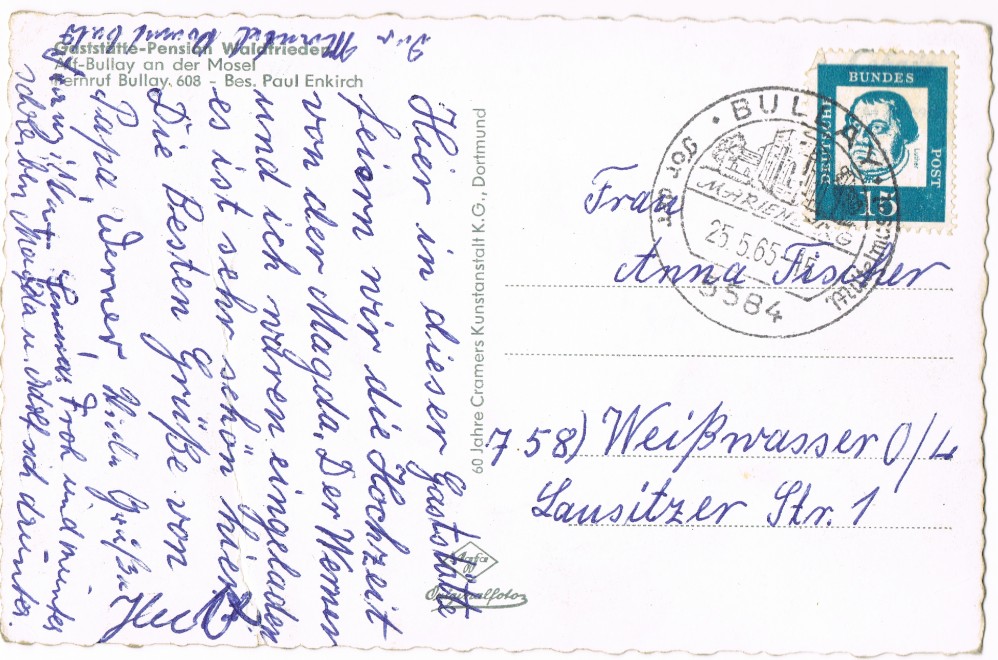 Gaststätte-Pension Waldfrieden
Alf-Bullay an der Mosel
Fernruf Bullay. 608 – Bes. Paul Enkirch
Hier in dieser Gaststätte
feiern wir die Hochzeit
von der Magda. Der Werner
und ich wären eingeladen
es ist sehr schön hier
Die Besten Grüße von
Papa, Werner, Viele Grüße
Froh und munter
schreiben Magda u. sich drunter
60 Jahre Cramers Kunstanstalt K.G., Dortmund
Agfa
Originalfoto
BUNDES
POST
15
BULLAY
MARIENBURG
25.5.65
5584
Frau
Anna Fischer
758) Weißwasser O/L
Lausitzer Str. 1